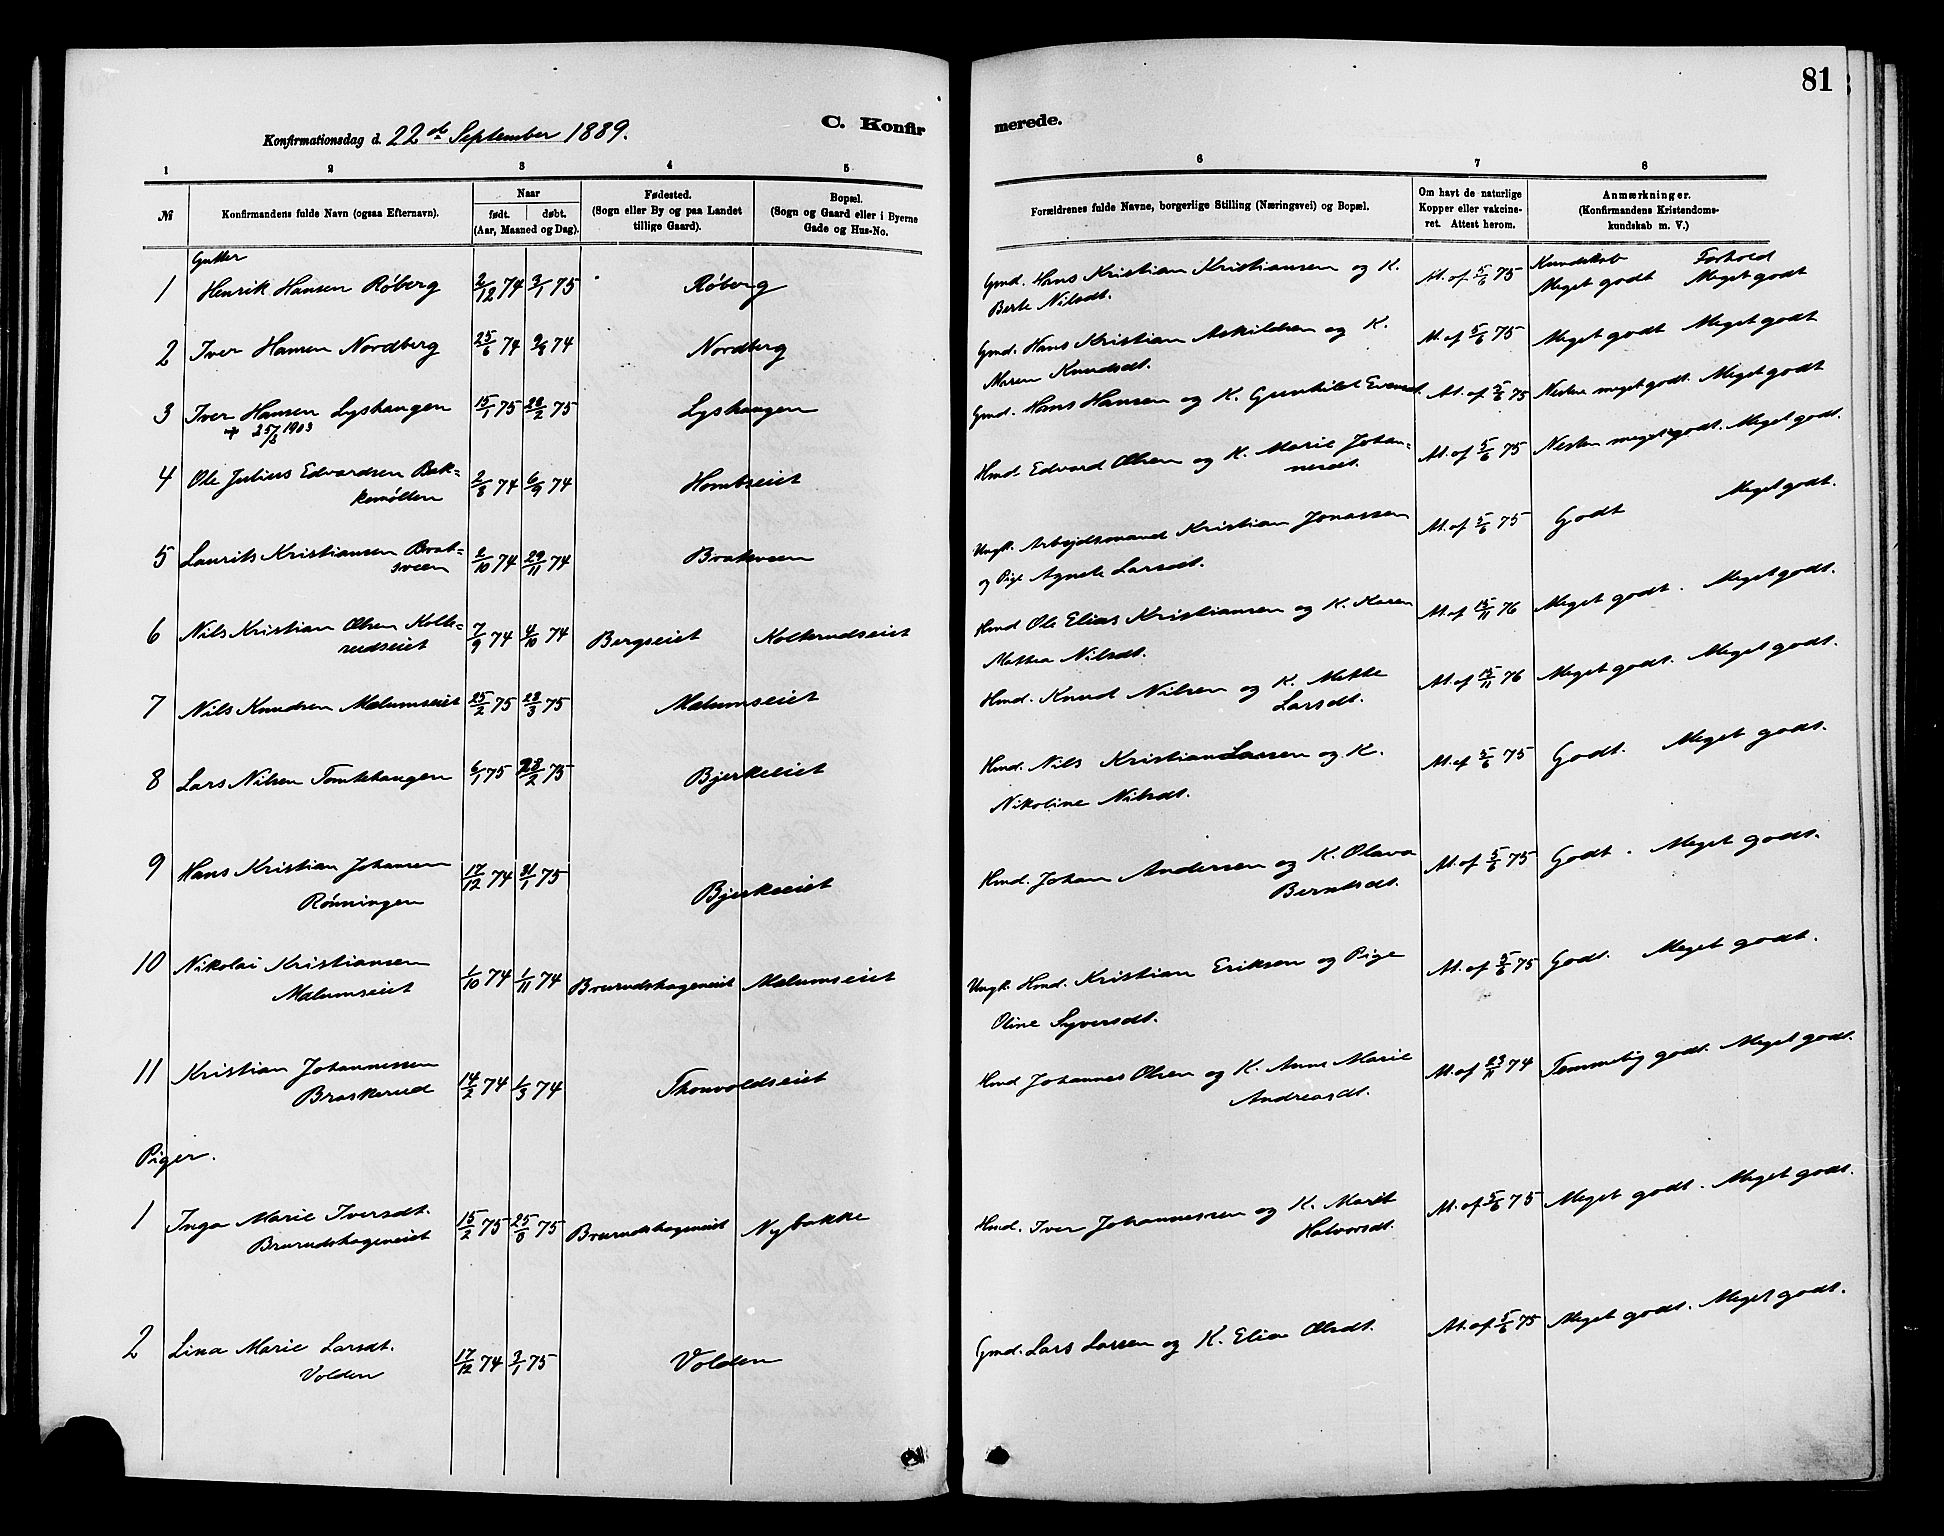 81
Konfirmationsdag d. 22de September 1889.
C. Konfir
merede.
1 2 3 4 5 6 7 8
№
Konfirmandens fulde Navn (ogsaa Efternavn).
Naar
født. døbt.
(Aar, Maaned og Dag).
Fødested.
(Sogn eller By og paa Landet
tillige Gaard).
Bopæl.
(Sogn og Gaard eller i Byerne
Gade og Hus-No.
Forældrenes fulde Navne, borgerlige Stilling (Næringsvei) og Bopæl.
Om havt de naturlige
Kopper eller vakcine-
ret. Attest herom.
Anmærkninger.
(Konfirmandens Kristendoms-
kundskab m. V.)
Gutter
Kundskab Forhold
1 Henrik Hansen Røberg 2/12 74 3/1 75 Røberg Gmd. Hans Kristian Kristiansen og K. At. af 5/6 75 Meget godt Meget godt
Berte Nilsdt.
2 Iver Hansen Nordberg 25/6 74 9/8 74 Nordberg Gmd. Hans Kristian Askildsen og K. At. af 5/6 75 Meget godt Meget godt
Maren Knudsdt.
3 Iver Hansen Lyshaugen 15/1 75 28/2 75 Lyshaugen Gmd. Hans Hansen og K. Gunhild Evensdt. At. af 5/6 75 Nesten meget godt. Meget godt
25/3 1903
4 Ole Julius Edvardsen Bak- 2/8 74 6/9 74 Hombseiet Hmd. Edvard Olsen og K. Marie Johan- At. af 5/6 75 Nesten meget godt. Meget godt.
kemøllen
nesdt.
5 Laurits Kristiansen Brat- 2/10 74 29/11 74 Brakveen Ungk. Arbeidsmand Kristian Jonassen At. af 5/6 75 Godt Meget godt.
sveen
og Pige Agnete Larsdt.
6 Nils Kristian Olsen Kolke- 7/9 74 4/10 74 Bergseiet Kolkerudseiet Hmd Ole Elias Kristiansen og K. Karen At. af 15/11 76 Meget godt. Meget godt.
rudseiet
Mathea Nilsdt.
7 Nils Knudsen Mælumseiet 25/2 75 28/3 75 Mælumseiet Hmd. Knud Nilsen og K. Mette At. af 15/11 76 Meget godt. Meget godt.
Larsdt.
8 Lars Nilsen Tomtehaugen 6/1 75 28/2 75 Bjerkeeiet Hmd. Nils Kristian Larsen og K. At. af 5/6 75 Godt. Meget godt.
Nikoline Nilsdt.
9 Hans Kristian Johansen 17/12 74 31/1 75 Bjerkeeiet Hmd. Johan Andersen og K. Olava At. af 5/6 75 Godt. Meget godt.
Rønningen
Berntsdt.
10 Nikolai Kristiansen 1/10 74 1/11 74 Brurudshageneiet Mælumseiet Ungk. Hmd. Kristian Eriksen og Pige At. af 5/6 75 Godt. Meget godt.
Mælumseiet
Oline Syversdt.
11 Kristian Johannessen 14/2 74 1/3 74 Thonvoldseiet Hmd Johannes Olsen og K. Anne Marie At. af 23/11 74 Temmelig godt. Meget godt.
Braskerud
Andreasdt.
Piger.
1 Inga Marie Iversdt. 15/2 75 25/ 75 Brurudshageneiet Nybakke Hmd. Iver Johannessen og K. Marit At. af 5/6 75 Meget godt. Meget godt.
Brurudshageneiet
Halvorsdt.
2 Lina Marie Larsdt. 17/12 74 3/1 75 Volden Gmd. Lars Larsen og K. Elise Olsdt. At. af 5/6 75 Meget godt. Meget godt.
Volden